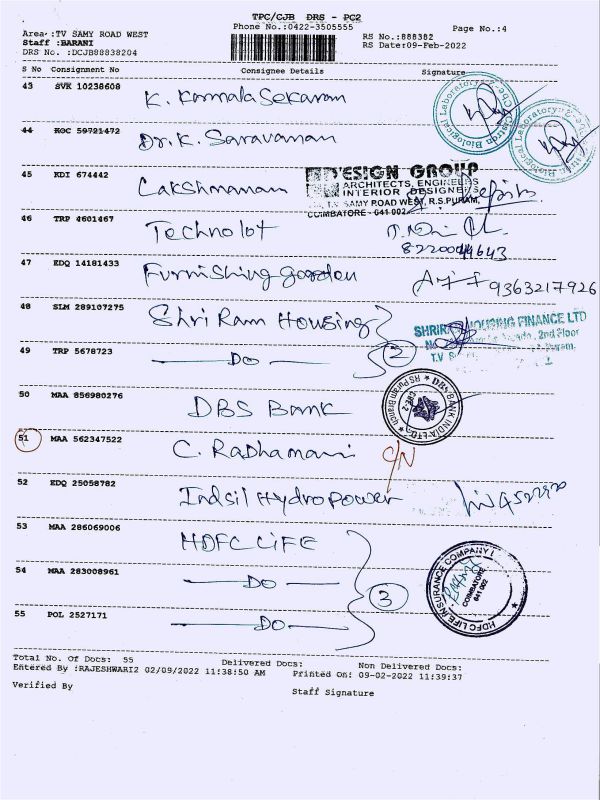 TPC/CJB DRS - PC2
Phone No.:0422-3505555
Page No.:4
Area :TV SAMY ROAD WEST
Staff :BARANI
DRS No. :DCJB88838204
RS No.:888382
RS Date:09-Feb-2022
S No Consignment No Consignee Details Signature
43 SVK 10238608 K. KamalaSekaran
44 KOC 59721472 Dr. K. Saravanan
45 KDI 674442 Lakshmanan
DESIGN GROUP
ARCHITECTS, ENGINEERS
INTERIOR DESIGNERS
T.V. SAMY ROAD WEST, R.S.PURAM,
COIMBATORE - 641 002
46 TRP 4601467 Technolot
47 EDQ 14181433 Furnishing garden 9363217926
48 SLM 289107275 Shri Ram Housing
SHRIRAM HOUSING FINANCE LTD
2nd Floor
49 TRP 5678723 DO 2
50 MAA 856980276 DBS Bank
DBS BANK INDIA LTD
RS Puram Branch
51 MAA 562347522 C. Radhamani C/N
52 EDQ 25058782 Indsil Hydro Power
53 MAA 286069006 HDFC LIFE
54 MAA 283008961 DO 3
HDFC LIFE INSURANCE COMPANY
COIMBATORE
641 002
55 POL 2527171 DO
Total No. Of Docs: 55 Delivered Docs: Non Delivered Docs:
Entered By :RAJESHWARI2 02/09/2022 11:38:50 AM Printed On: 09-02-2022 11:39:37
Verified By Staff Signature